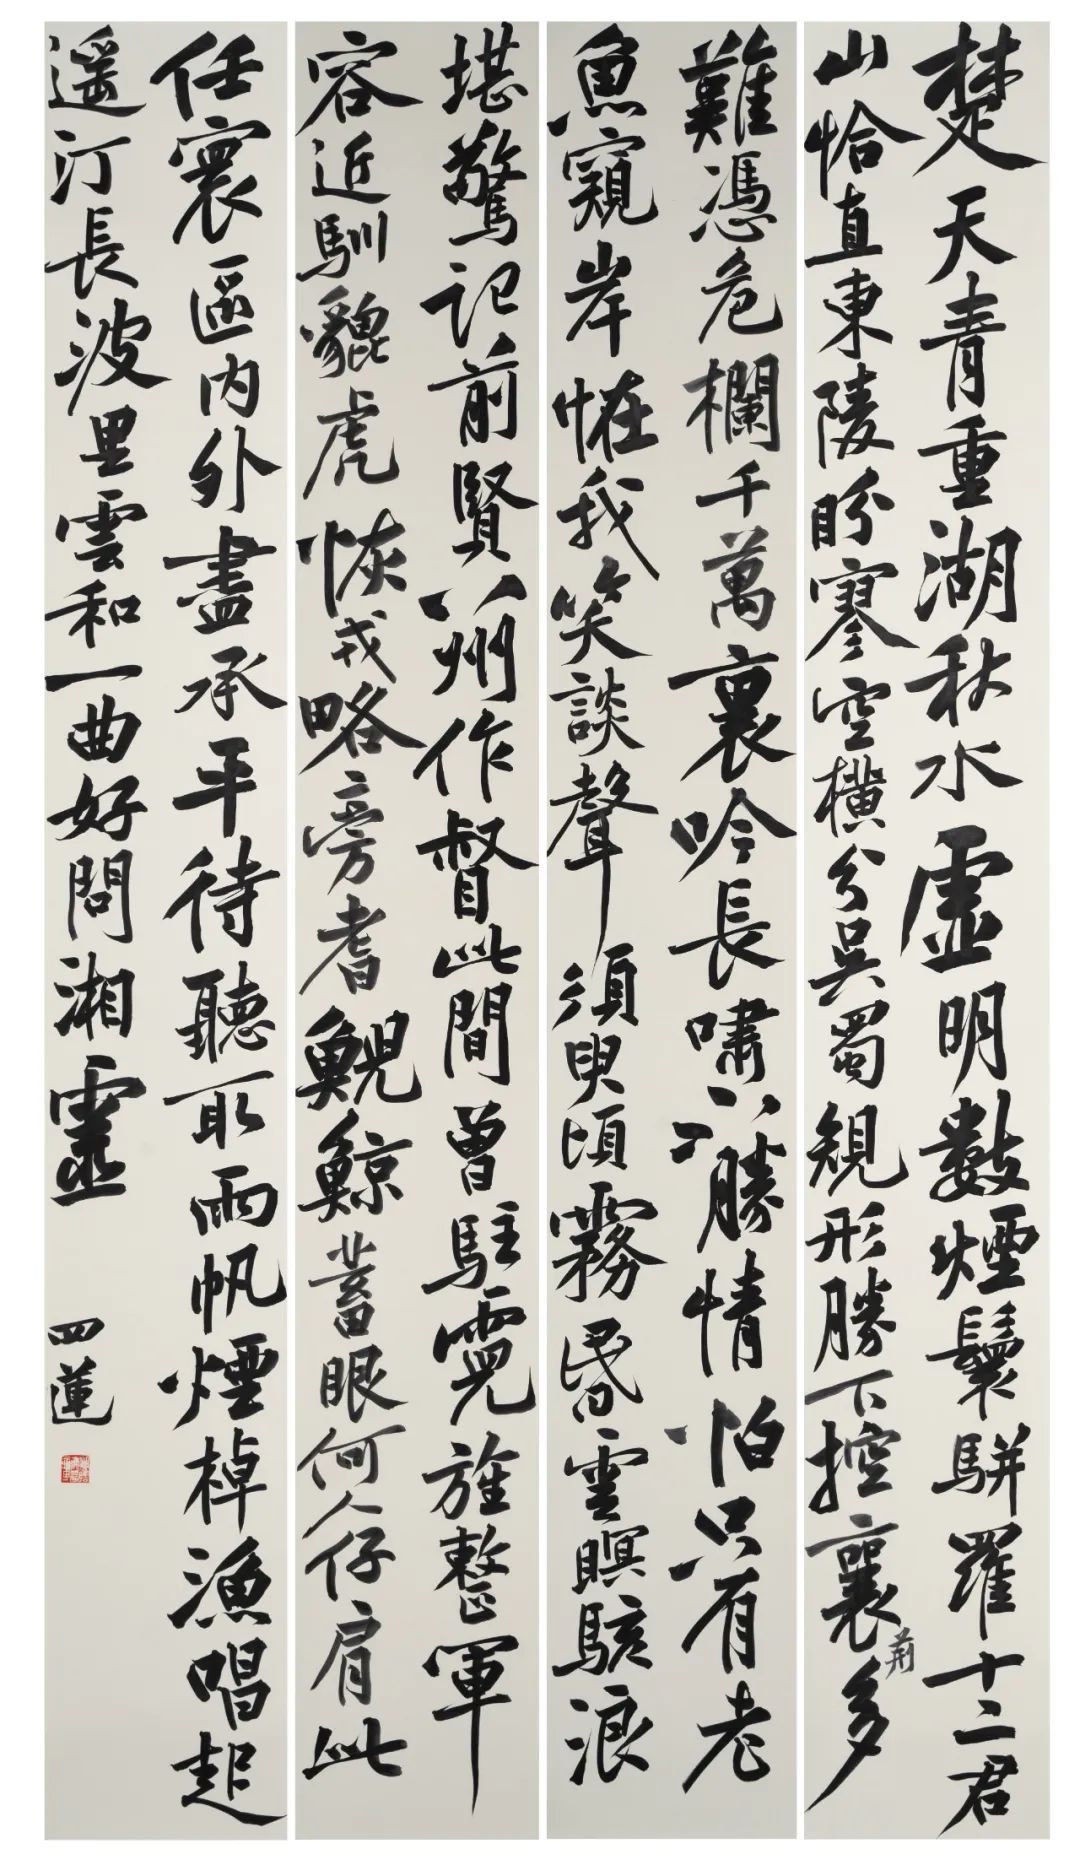 楚天青重湖秋水虛明數煙鬟駢羅十二君
山恰直東陵盼寥空橫分吳蜀規形勝下控襄多
荆
難憑危欄千萬裏吟長嘯不勝情怕只有老
魚窺岸恠我笑談聲須臾頃霧昏雲瞑駭浪
堪驚記前賢八州作督此間曾駐霓旌整軍
容近馴貔虎恢戎略旁耆鯢鯨蓄眼何人仔肩此
任寰區内外盡承平待聽取雨帆煙棹漁唱起
遥汀長波里雲和一曲好問湘靈
四蓮